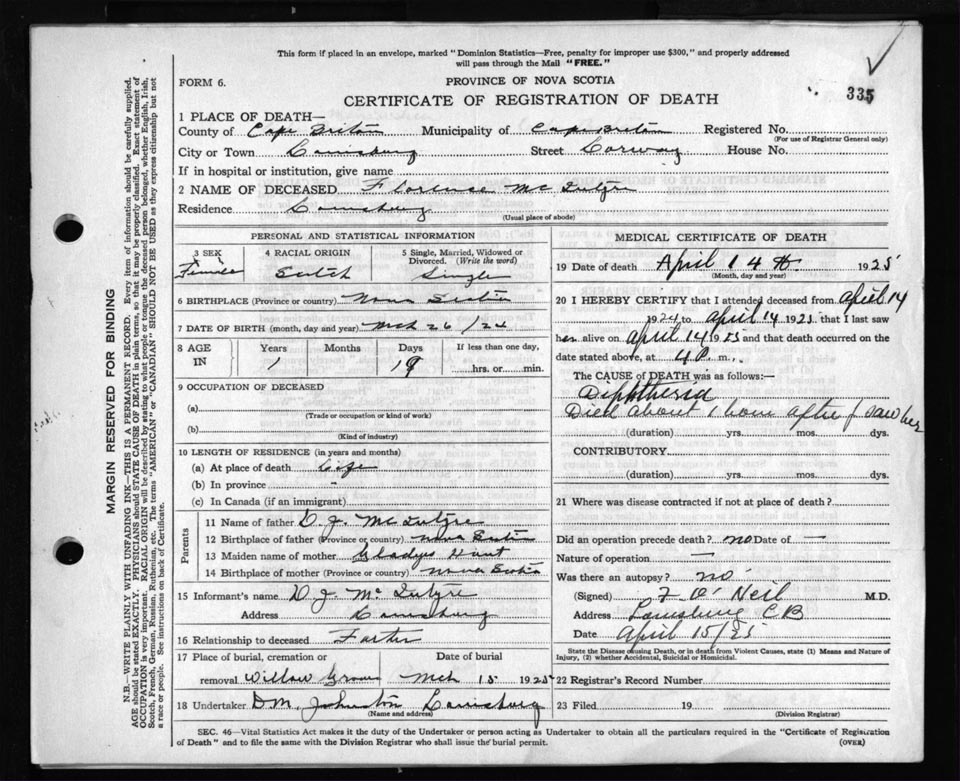 This form if placed in an envelope, marked "Dominion Statistics—Free, penalty for improper use $300," and properly addressed
will pass through the Mail "FREE."
335
FORM 6.
PROVINCE OF NOVA SCOTIA
CERTIFICATE OF REGISTRATION OF DEATH
1 PLACE OF DEATH—
County of Cape Breton Municipality of Cape Breton Registered No.
(For use of Registrar General only)
City or Town Louisburg Street House No.
If in hospital or institution, give name
2 NAME OF DECEASED Florence McIntyre
Residence Louisburg
(Usual place of abode)
PERSONAL AND STATISTICAL INFORMATION
3 SEX Female
4 RACIAL ORIGIN Scotch
5 Single, Married, Widowed or Divorced. (Write the word) Single
6 BIRTHPLACE (Province or country) Nova Scotia
7 DATE OF BIRTH (month, day and year) Mch 26/24
8 AGE IN Years 1 Months Days 19 If less than one day, hrs. or min.
9 OCCUPATION OF DECEASED
(a)
(Trade or occupation or kind of work)
(b)
(Kind of industry)
10 LENGTH OF RESIDENCE (in years and months)
(a) At place of death Life
(b) In province -
(c) In Canada (if an immigrant)
Parents
11 Name of father D. J. McIntyre
12 Birthplace of father (Province or country) Nova Scotia
13 Maiden name of mother Gladys
14 Birthplace of mother (Province or country) Nova Scotia
15 Informant's name D J McIntyre
Address Louisburg
16 Relationship to deceased Father
17 Place of burial, cremation or removal Willow Grove
Date of burial Mch 15 1925
18 Undertaker D.M. Johnston Louisburg
(Name and address)
MEDICAL CERTIFICATE OF DEATH
19 Date of death April 14th 1925
(Month, day and year)
20 I HEREBY CERTIFY that I attended deceased from April 14
1924 to April 14 1925 that I last saw
her alive on April 14 1925 and that death occurred on the
date stated above, at 4 P. m.
The CAUSE of DEATH was as follows:—
Diphtheria
Died about 1 hour after I saw her
(duration) yrs. mos. dys.
CONTRIBUTORY
(duration) yrs. mos. dys.
21 Where was disease contracted if not at place of death?
Did an operation precede death? no Date of —
Nature of operation —
Was there an autopsy? no
(Signed) F O'Neil M.D.
Address Louisburg CB
Date April 15/25
State the Disease causing Death, or in death from Violent Causes, state (1) Means and Nature of
Injury, (2) whether Accidental, Suicidal or Homicidal.
22 Registrar's Record Number
23 Filed 19
(Division Registrar)
SEC. 46—Vital Statistics Act makes it the duty of the Undertaker or person acting as Undertaker to obtain all the particulars required in the "Certificate of Registration
of Death" and to file the same with the Division Registrar who shall issue the burial permit. (OVER)
MARGIN RESERVED FOR BINDING
N.B.—WRITE PLAINLY WITH UNFADING INK—THIS IS A PERMANENT RECORD. Every item of information should be carefully supplied.
AGE should be stated EXACTLY. PHYSICIANS should STATE CAUSE OF DEATH in plain terms, so that it may be properly classified. Exact statement of
OCCUPATION is very important. RACIAL ORIGIN will be described by stating to what people or tongue the deceased person belonged, whether English, Irish,
Scotch, French, German, Russian, Ruthenian, etc. The terms "AMERICAN" or "CANADIAN" SHOULD NOT BE USED as they express citizenship but not
a race or people. See instructions on back of Certificate.